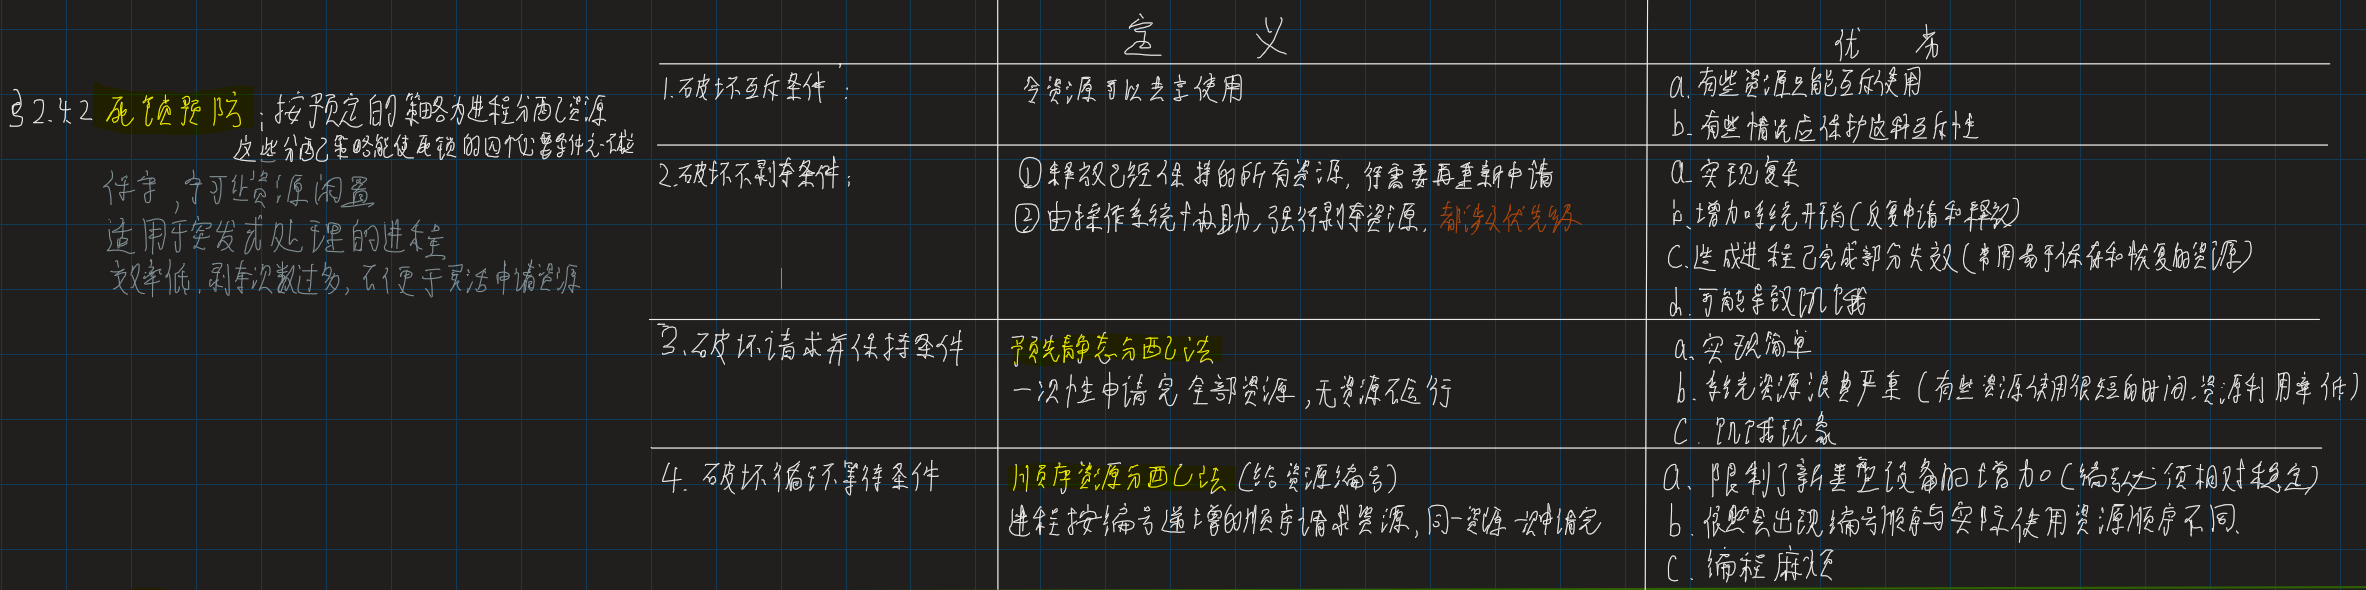 §2.4.2 死锁预防：按预定的策略为进程分配资源
这些分配策略能使死锁的四个必要条件之一不成立
保守，宁可让资源闲置
适用于突发式处理的进程
效率低，剥夺次数过多，不便于灵活申请资源
定 义
优 劣
1.破坏互斥条件：
令资源可以共享使用
a.有些资源只能互斥使用
b.有些情况应保护这种互斥性
2.破坏不剥夺条件：
①释放已经保持的所有资源，待需要再重新申请
②由操作系统协助，强行剥夺资源，都涉及优先级
a.实现复杂
b.增加系统开销(反复申请和释放)
c.造成进程已完成部分失效(常用易于保存和恢复的资源)
d.可能导致饥饿
3.破坏请求并保持条件
预先静态分配法
一次性申请完全部资源，无资源不运行
a.实现简单
b.系统资源浪费严重(有些资源使用很短的时间.资源利用率低)
c.饥饿现象
4.破坏循环等待条件
顺序资源分配法(给资源编号)
进程按编号递增的顺序请求资源，同一资源一次申请完
a.限制了新类型设备的增加(编号必须相对稳定)
b.依然会出现编号顺序与实际使用资源顺序不同.
c.编程麻烦